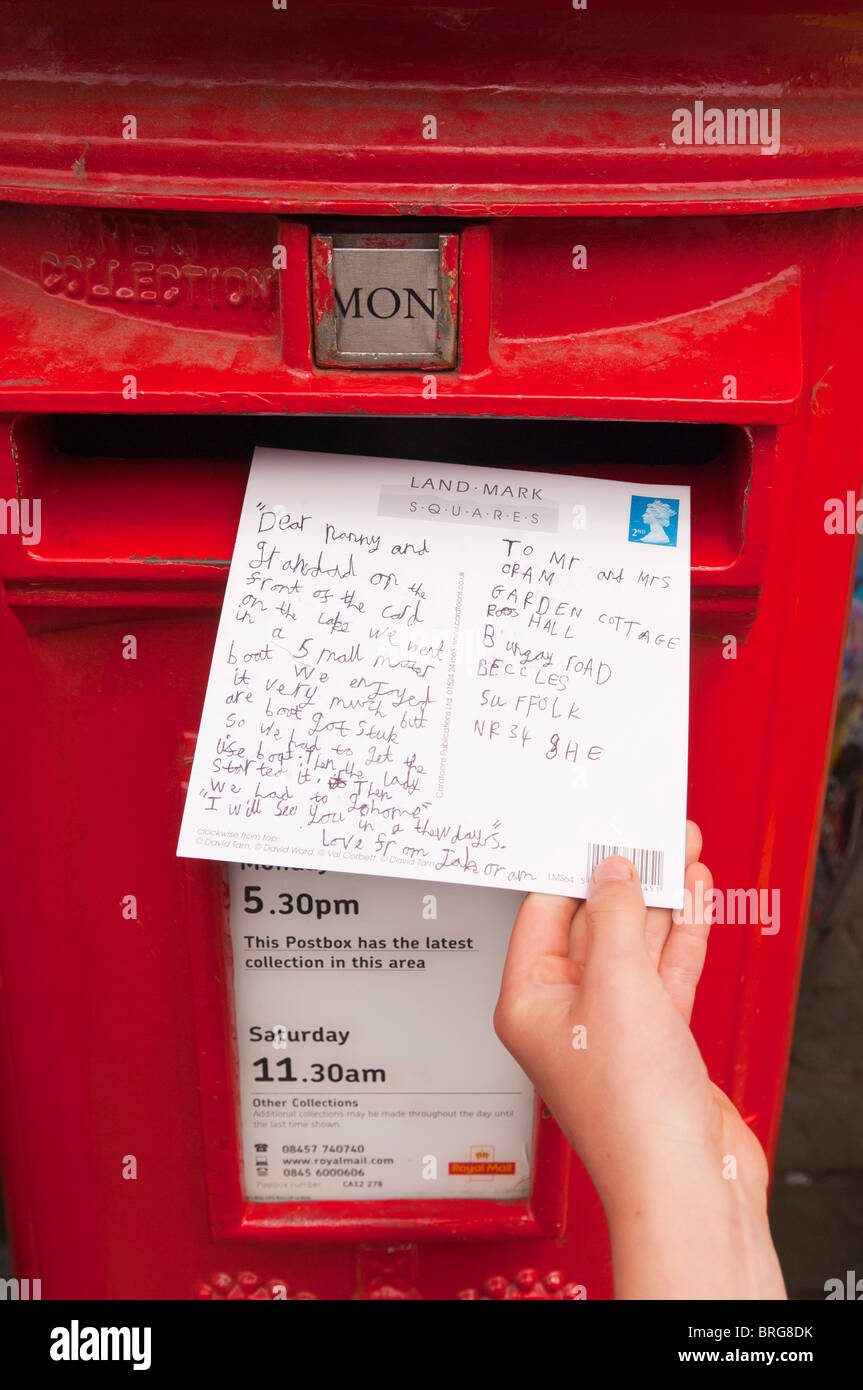 NEXT
COLLECTION
MON
LAND·MARK
S·Q·U·A·R·E·S
2ND
"Dear nanny and
on the
front of the card
on the lake we went
in a small motor
boat we enjoyed
it very much but
are boat got stuk
So we had to get the
boat. Then the lady
started it. Then
we had to go home"
"I will see you
in a thew days".
Love from Jake oram
TO Mr and Mrs
ORAM
GARDEN COTTAGE
ROOS HALL
Bungay ROAD
BECCLES
SUFFOLK
NR34 8HE
Cardtoons Publications Ltd. 01524 241663 www.cardtoons.co.uk
clockwise from top:
© David Tarn, © David Ward, © Val Corbett, © David Tarn
LMS64
Monday
5.30pm
This Postbox has the latest
collection in this area
Saturday
11.30am
Other Collections
Additional collections may be made throughout the day until
the last time shown.
08457 740740
www.royalmail.com
0845 6000606
Postbox number CA12 278
Royal Mail
alamy
Image ID: BRG8DK
www.alamy.com